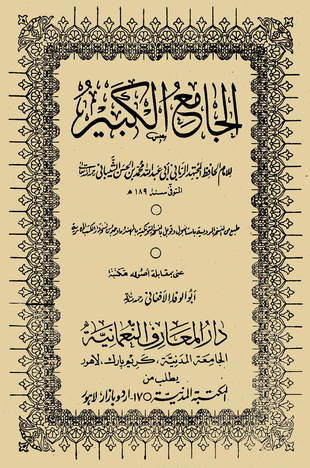 الجامع الكبير
للامام الحافظ المجتهد الربانى ابى عبدالله محمد بن الحسن الشيبانى
المتوفى سنة ۱۸۹ ھ
عنى بمقابلة أصوله
أبو الوفا الأفغانى
دار المعارف النعمانية
الجامعة المدنية، كريم پارك، لاهور
يطلب من
المكتبة المدنية، ۱۷۵، اردو بازار لاهور